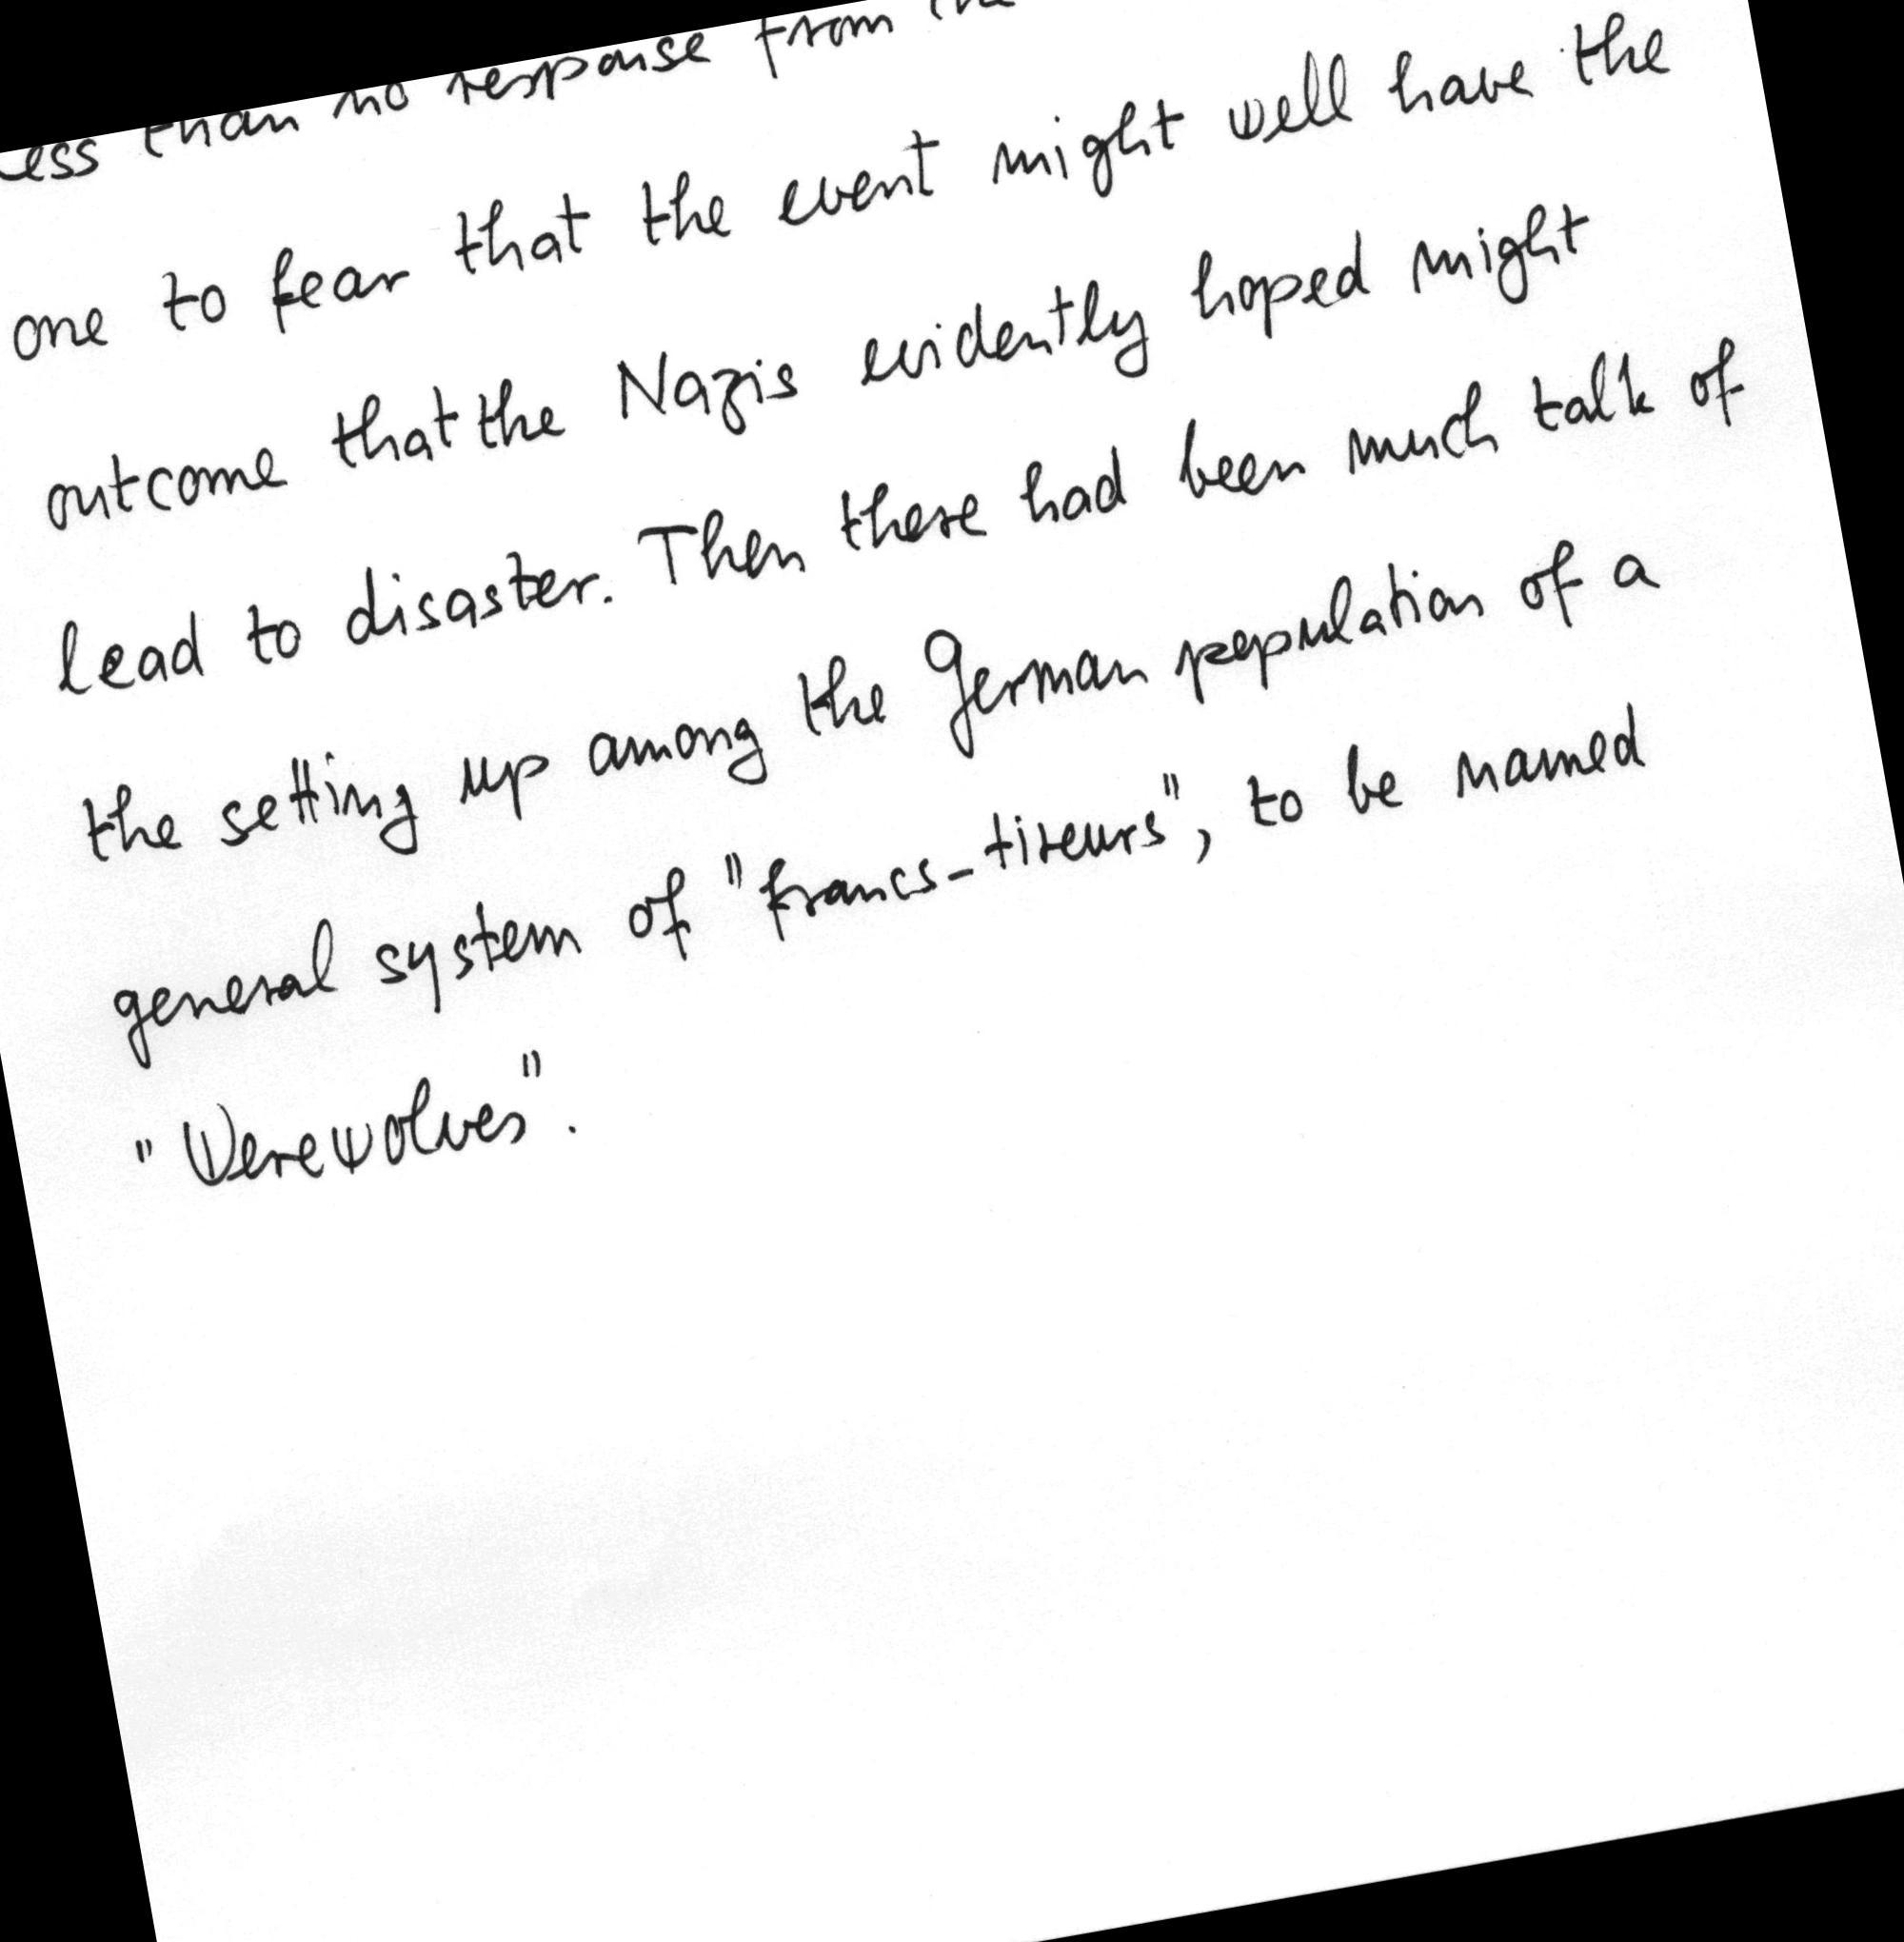 than no response from
one to fear that the event might well have the
outcome that the Nazis evidently hoped might
lead to disaster. Then there had been much talk of
the setting up among the German population of a
general system of "francs-tireurs", to be named
"Werewolves".